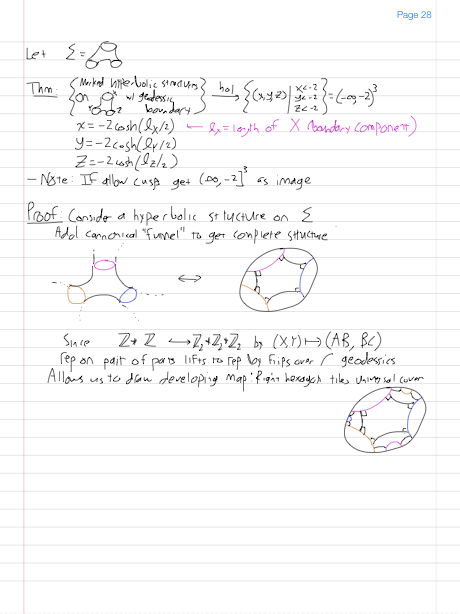 Page 28
Let Σ =
Thm: { Marked hyperbolic structures on w/ geodesic boundary } hol → { (x,y,z) | x<-2 y<-2 z<-2 } = (-∞,-2)³
x = -2cosh(ℓx/2) ← ℓx = length of X boundary component)
y = -2cosh(ℓy/2)
z = -2cosh(ℓz/2)
- Note: If allow cusps get (∞,-2]³ as image
Proof: Consider a hyperbolic structure on Σ
Add cannonical "funnel" to get complete structure
↔
Since ℤ * ℤ ↪ ℤ₂*ℤ₂*ℤ₂ by (X,Y) ↦ (AB, BC)
rep on pair of pants lifts to rep by flips over geodessics
Allows us to draw developing map: Right hexagon tiles universal cover